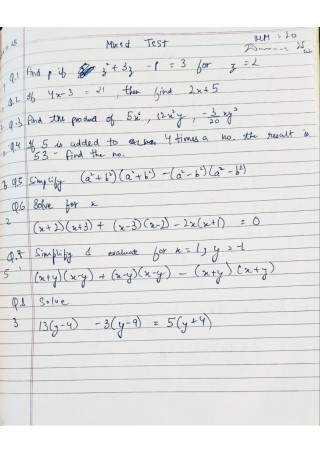 Mixed Test
MM = 20
Q.1 Find p if z² + 3z - p = 3 for z = 2
Q.2. If 4x-3 = 21, then find 2x+5
Q.3 Find the product of 5x², 12x²y, -3/20 xy³
Q.4 If 5 is added to 4 times a no. the result is
53 - find the no.
Q.5 Simplify (a²+b²)(a²+b²) - (a²-b²)(a²-b²)
Q.6 Solve for x
2
(x+2)(x+3) + (x-3)(x-2) - 2x(x+1) = 0
Q.7 Simplify & evaluate for x=1, y=-1
5
(x+y)(x-y) + (x-y)(x-y) - (x+y)(x+y)
Q.8 Solve
3
13(y-4) - 3(y-9) = 5(y+4)